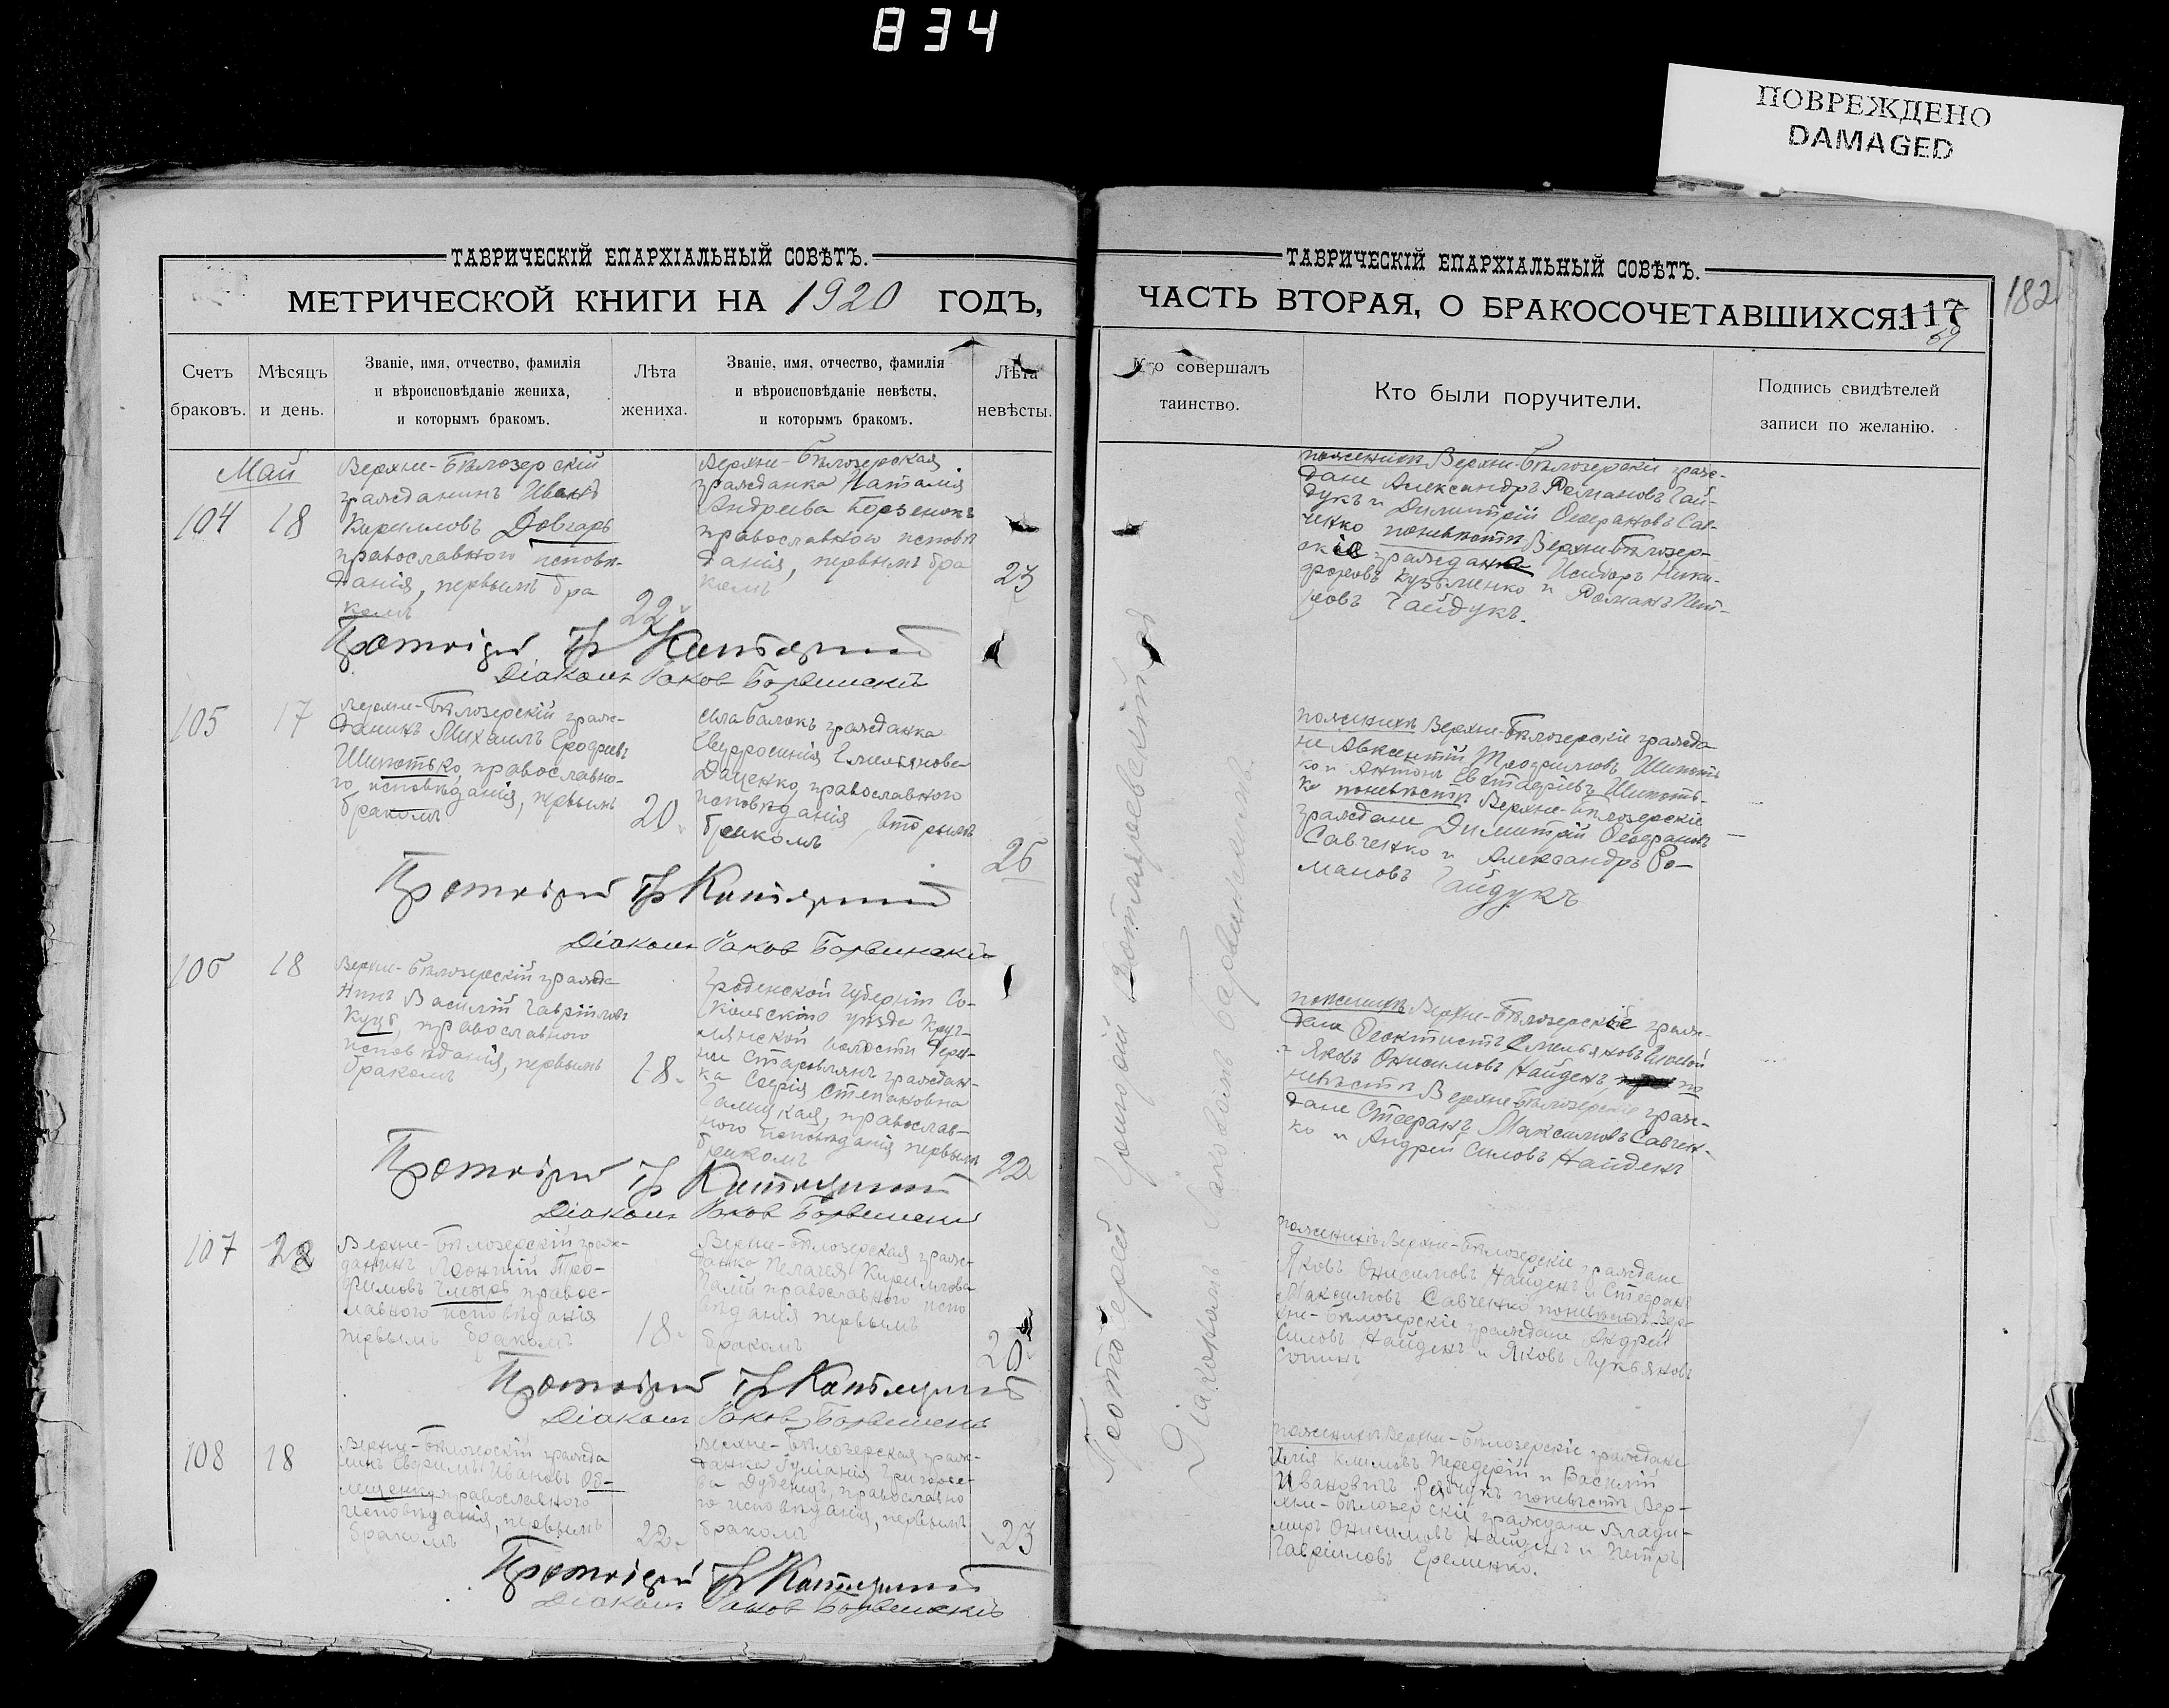 834
ПОВРЕЖДЕНО
DAMAGED
ТАВРИЧЕСКІЙ ЕПАРХІАЛЬНЫЙ СОВѢТЪ.
МЕТРИЧЕСКОЙ КНИГИ НА 1920 ГОДЪ,
Счетъ браковъ.
Мѣсяцъ и день.
Званіе, имя, отчество, фамилія
и вѣроисповѣданіе жениха,
и которымъ бракомъ.
Лѣта жениха.
Званіе, имя, отчество, фамилія
и вѣроисповѣданіе невѣсты,
и которымъ бракомъ.
Лѣта невѣсты.
Май
104
18
Верхне-Бѣлозерскій
гражданинъ Иванъ
Кирилловъ Довгаръ
православнаго исповѣ-
данія, первымъ бра
комъ
22
Верхне-Бѣлозерская
гражданка Наталія
Андреева
православного исповѣ
данія, первымъ бра
комъ
23
Протоіерей
Діаконъ Іаков Борвинскій
105
17
Верхне-Бѣлозерскій граж-
данинъ Михаилъ
Шипотько, православно-
го исповѣданія, первымъ
бракомъ
20
гражданка
Евфросинія Емельянова
Даценко, православного
исповѣданія, вторымъ
бракомъ
26
Протоіерей
Діаконъ Іаков Борвинскій
106
18
Верхне-Бѣлозерскій гражда
нинъ Василій Гавріиловъ
Куцъ, православного
исповѣданія, первымъ
бракомъ
18.
Гродненской губерніи Со-
кольского уѣзда
волости дерев-
ни граждан-
ка Софія Степановна
православ-
ного исповѣданія первымъ
бракомъ
22
Протоіерей
Діаконъ Іаков Борвинскій
107
28
Верхне-Бѣлозерскій граж-
данинъ Леонтій Тро-
фимовъ правос-
лавного исповѣданія
первымъ бракомъ
18.
Верхне-Бѣлозерская граж-
данка Пелагея Кириллова
Палій православного испо
вѣданія первымъ
бракомъ
20
Протоіерей
Діаконъ Іаков Борвинскій
108
18
Верхне-Бѣлозерскій гражда
нинъ Ивановъ
православного
исповѣданія, первымъ
бракомъ
22.
Верхне-Бѣлозерская граж-
данка Іуліанія Григорье-
ва православно
го исповѣданія, первымъ
бракомъ
23
Протоіерей
Діаконъ Іаков Борвинскій
ТАВРИЧЕСКІЙ ЕПАРХІАЛЬНЫЙ СОВѢТЪ.
ЧАСТЬ ВТОРАЯ, О БРАКОСОЧЕТАВШИХСЯ
117
69
182
Кто совершалъ таинство.
Кто были поручители.
Подпись свидѣтелей
записи по желанію.
Протоіерей
Діакономъ Іаковомъ Борвинскимъ.
по женихѣ Верхне-Бѣлозерскіе граж-
дане Александръ Романовъ Гай-
дукъ и Димитрій Савченко
по невѣстѣ Верхне-Бѣлозер-
скіе граждане Исидоръ Ники-
форовъ Кузьменко и Романъ Пет-
ровъ Гайдукъ.
по женихѣ Верхне-Бѣлозерскіе гражда
не Авксентій Трофимовъ Шипоть
ко и Антонъ Евстафіевъ Шипоть-
ко по невѣстѣ Верхне-Бѣлозерскіе
граждане Димитрій
Савченко и Александръ Ро-
мановъ Гайдукъ
по женихѣ Верхне-Бѣлозерскіе граж-
дане Феоктистъ Емельяновъ
и Яковъ Онисимовъ Найденъ, по
невѣстѣ Верхне-Бѣлозерскіе граж-
дане Стефанъ Максимовъ Савчен-
ко и Андрей Силовъ Найденъ
по женихѣ Верхне-Бѣлозерскіе граждане
Яковъ Онисимовъ Найденъ и Стефанъ
Максимовъ Савченко по невѣстѣ Вер-
хне-Бѣлозерскіе граждане Андрей
Силовъ Найденъ и Яковъ Лукьяновъ
по женихѣ Верхне-Бѣлозерскіе граждане
Илія Климовъ Передерій и Василій
Ивановичъ Рябчукъ по невѣстѣ Вер-
хне-Бѣлозерскіе граждане Влади-
миръ Онисимовъ Найденъ и Петръ
Гавріиловъ Еременко.